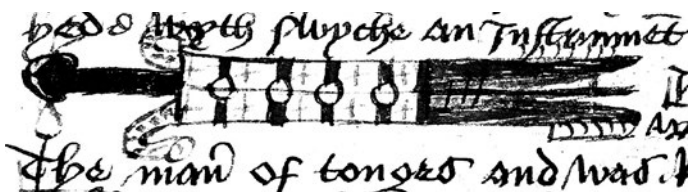 wyth swyche an Instrument
The man̄ of tonges and was